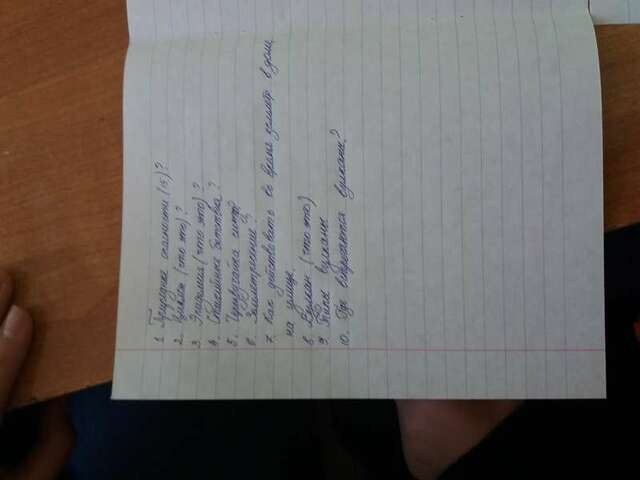 1. Природные опасности (15)?
2. (что это)?
3. Эпидемия (что это)?
4. Стихийные бетствия?
5. Черезвучайка
6. Землетресение?
7. Как действовать во время землетр. в доме,
на улице.
8. Вулкан (что это)
9. Типы вулканы
10. Где встречаются вулканы?